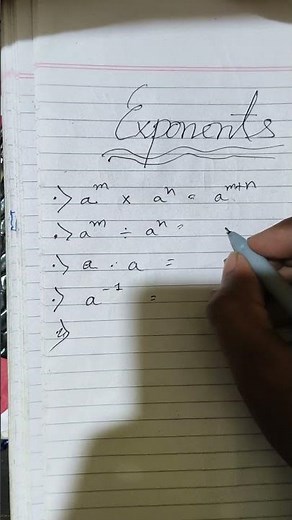 Exponents
·> aᵐ × aⁿ = aᵐ⁺ⁿ
·> aᵐ ÷ aⁿ =
·> a · a =
·> a⁻¹ =